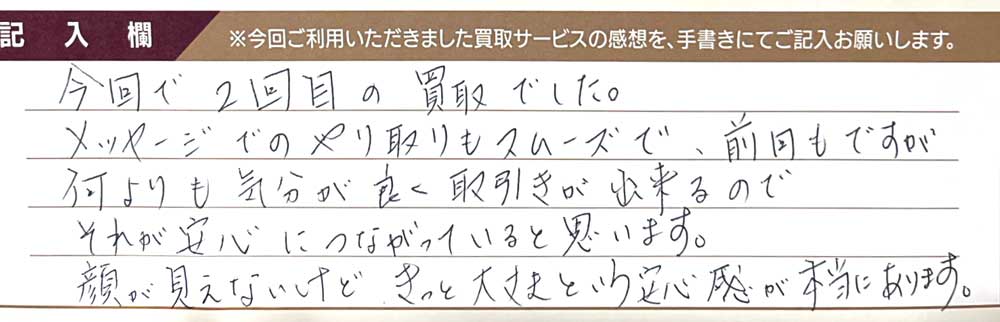 記入欄
※今回ご利用いただきました買取サービスの感想を、手書きにてご記入お願いします。
今回で2回目の買取でした。
メッセージでのやり取りもスムーズで、前回もですが
何よりも気分が良く取引きが出来るので
それが安心につながっていると思います。
顔が見えないけどきっと大丈夫という安心感が本当にあります。